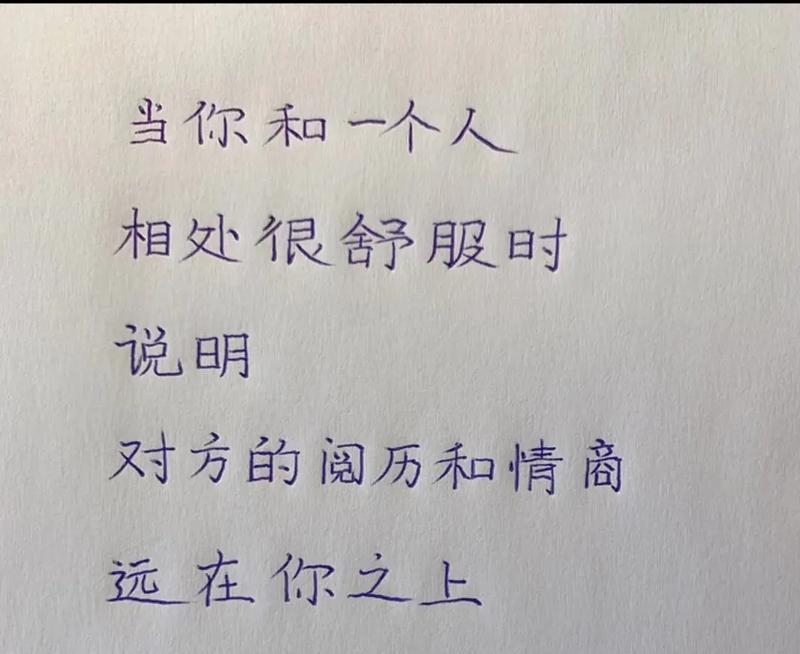 当你和一个人
相处很舒服时
说明
对方的阅历和情商
远在你之上